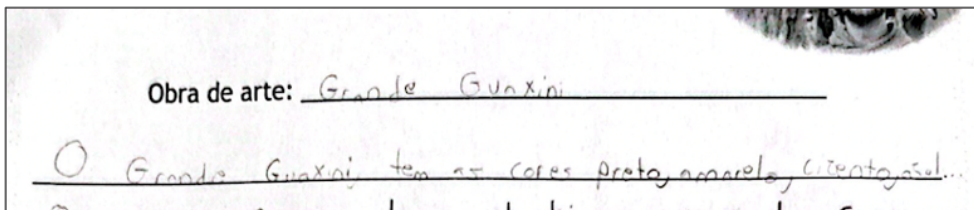 Obra de arte: Grande Guaxini
O Grande Guaxini tem as cores preto, amarelo, cizento, azul...